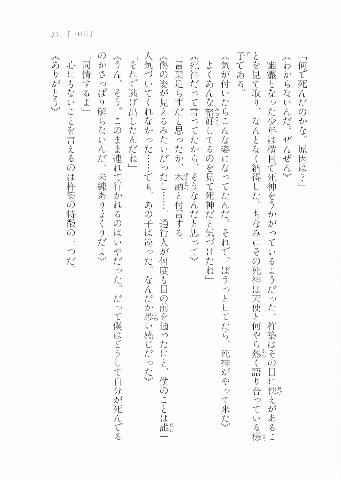 「何で死んだのかな、原因は？」
《わからないんだ。ぜんぜん》
幽霊となった少年は横目で死神をうかがっているようだった。杵築はその目に怯えがあるこ
とを見て取り、なんとなく納得した。ちなみにその死神は天使と何やら熱く語り合っている様
子である。
《気が付いたらこんな姿になってたんだ。それで、ぼうっとしてたら、死神がやって来た》
「よくあんな格好してるのを見て死神だと気づけたね」
《死神だって言ってたから、そうなんだと思って》
言葉足らずだと思ったか、木訥と付言する。
《僕の姿が見えるみたいだったし……通行人が何度も目の前を通ったけど、僕のことは誰一
人気づいてくれなかった……でも、あの子は違った。なんだか恐い感じだった》
「それで逃げ出したんだね」
《うん、そう。このまま連れて行かれるのはいやだった。だって僕はどうして自分が死んでる
のかさっぱり解らないんだ。未練ありまくりだよ》
「同情するよ」
心にもないことを言えるのは杵築の特徴の一つだ。
《ありがとう》